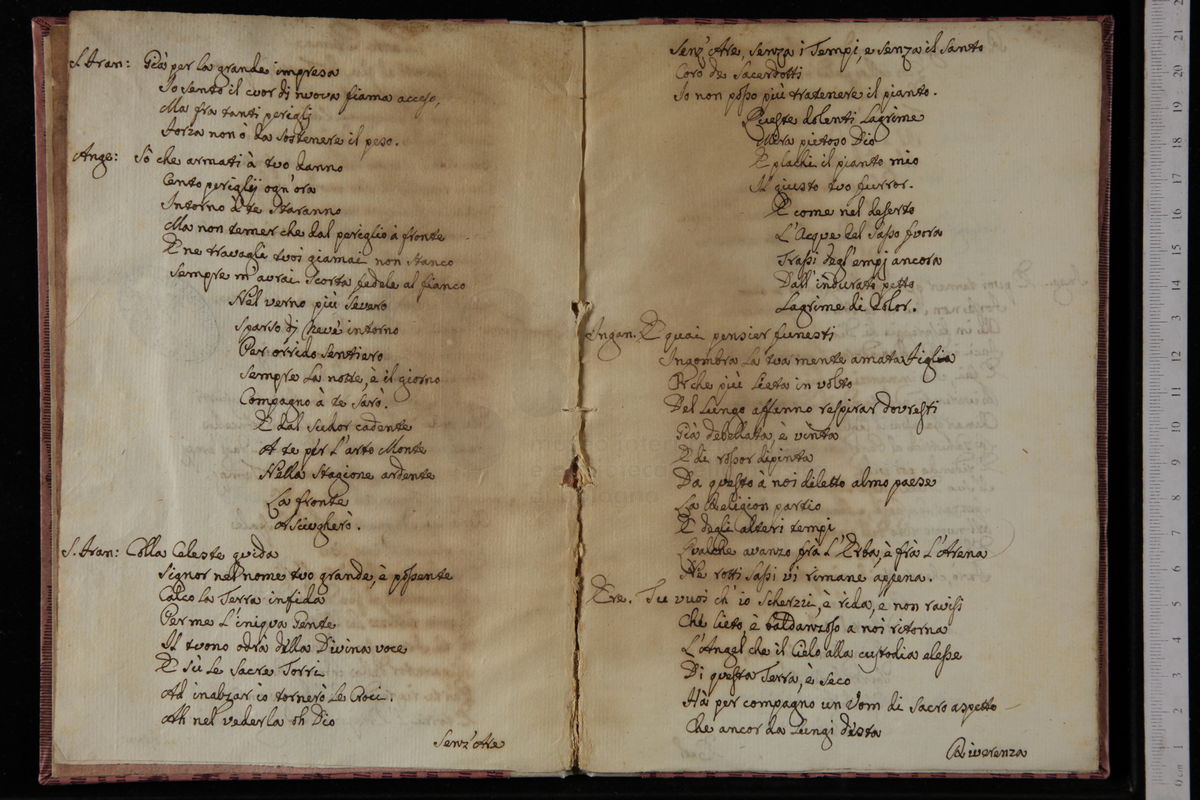 S. Fran: Già per la grande impresa
Io sento il cuor dj nuova fiama acceso,
Ma fra tanti periglj
Forza non ò da sostenere il peso.
Ange: Sò che armati à tuo danno
Cento periglij ogn'ora
Intorno à te staranno
Ma non temer che dal periglio à fronte
E ne travagli tuoi giamai non stanco
Sempre m'avrai scorta fedele al fianco
Nel verno più severo
Sparso dj nevi intorno
Per orrido sentiero
Sempre la notte, è il giorno
Compagno à te sarò.
E dal sudor cadente
A te per l'arto Monte
Nella stagione ardente
La fronte
Asciugherò.
S. Fran: Colla Celeste guida
Signor nel nome tuo grande, è possente
Calco la Terra infida
Per me l'iniqua Gente
Il tuono odrà della Divina voce
E sù le sacre Torri
Ad inalzar io tornerò le Croci.
Ah nel vederla oh Dio
Senz'Are
Senz'Are, senza i Tempi, e senza il santo
Coro de Sacerdotti
Io non posso più tratenere il pianto.
Queste dolenti Lagrime
Mira pietoso Dio
E plachi il pianto mio
Il giusto tuo furror.
E come nel deserto
L'Acque del sasso fuora
Trassi degl'empj ancora
Dall'indurato petto
Lagrime di Dolor.
Ingan. E quai pensier funesti
Ingombra la tua mente amata figlia
Or che più lieta in volto
Del lungo affanno respirar dovresti
Già debellata, è vinta
E di rossor dipinta
Da questo à noi diletto almo paese
La Religion partio
E degli alteri tempi
Qualche avanzo frà l'Erba, è frà l'Arena
Ne rotti sassi vi rimane appena.
Ere. Tu vuoi ch'io scherzi, è rida, e non ravisi
Che lieto, e baldanzoso a noi ritorna
L'Angel che il Cielo alla custodia elesse
Di questa Terra, è seco
Hà per compagno un Uom di sacro aspetto
Che ancor da lungi desta
Riverenza